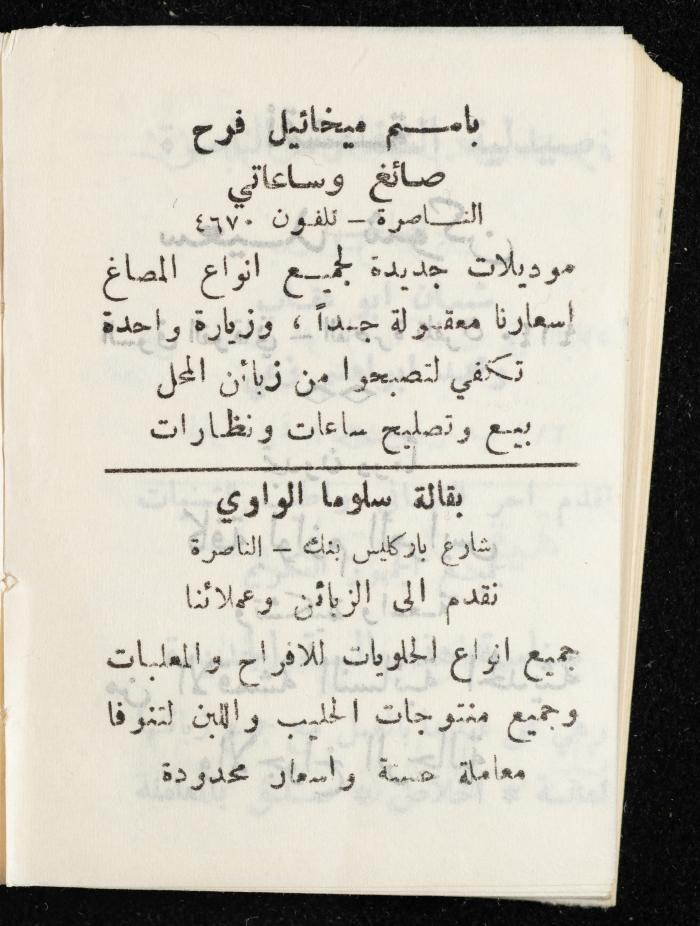 باسم ميخائيل فرح
صائغ وساعاتي
الناصرة – تلفون ٤٦٧٠
موديلات جديدة لجميع انواع المصاغ
اسعارنا معقولة جداً ، وزيارة واحدة
تكفي لتصبحوا من زبائن المحل
بيع وتصليح ساعات ونظارات
بقالة سلوما الواوي
شارع باركليس بنك – الناصرة
نقدم الى الزبائن وعملائنا
جميع انواع الحلويات للافراح والمعلبات
وجميع منتوجات الحليب واللبن لتنوفا
معاملة حسنة واسعار محدودة